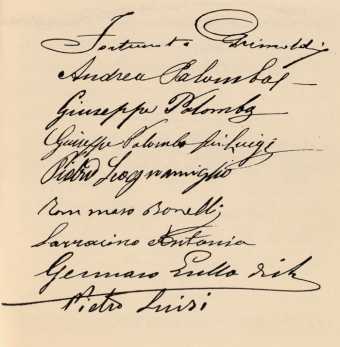 Fortunato Grimoldi
Andrea Palomba
Giuseppe Palomba
Giuseppe Palomba fu Luigi
Pietro Scognamiglio
Tommaso Bonelli
Sarracino Antonio
Gennaro
Pietro Luisi